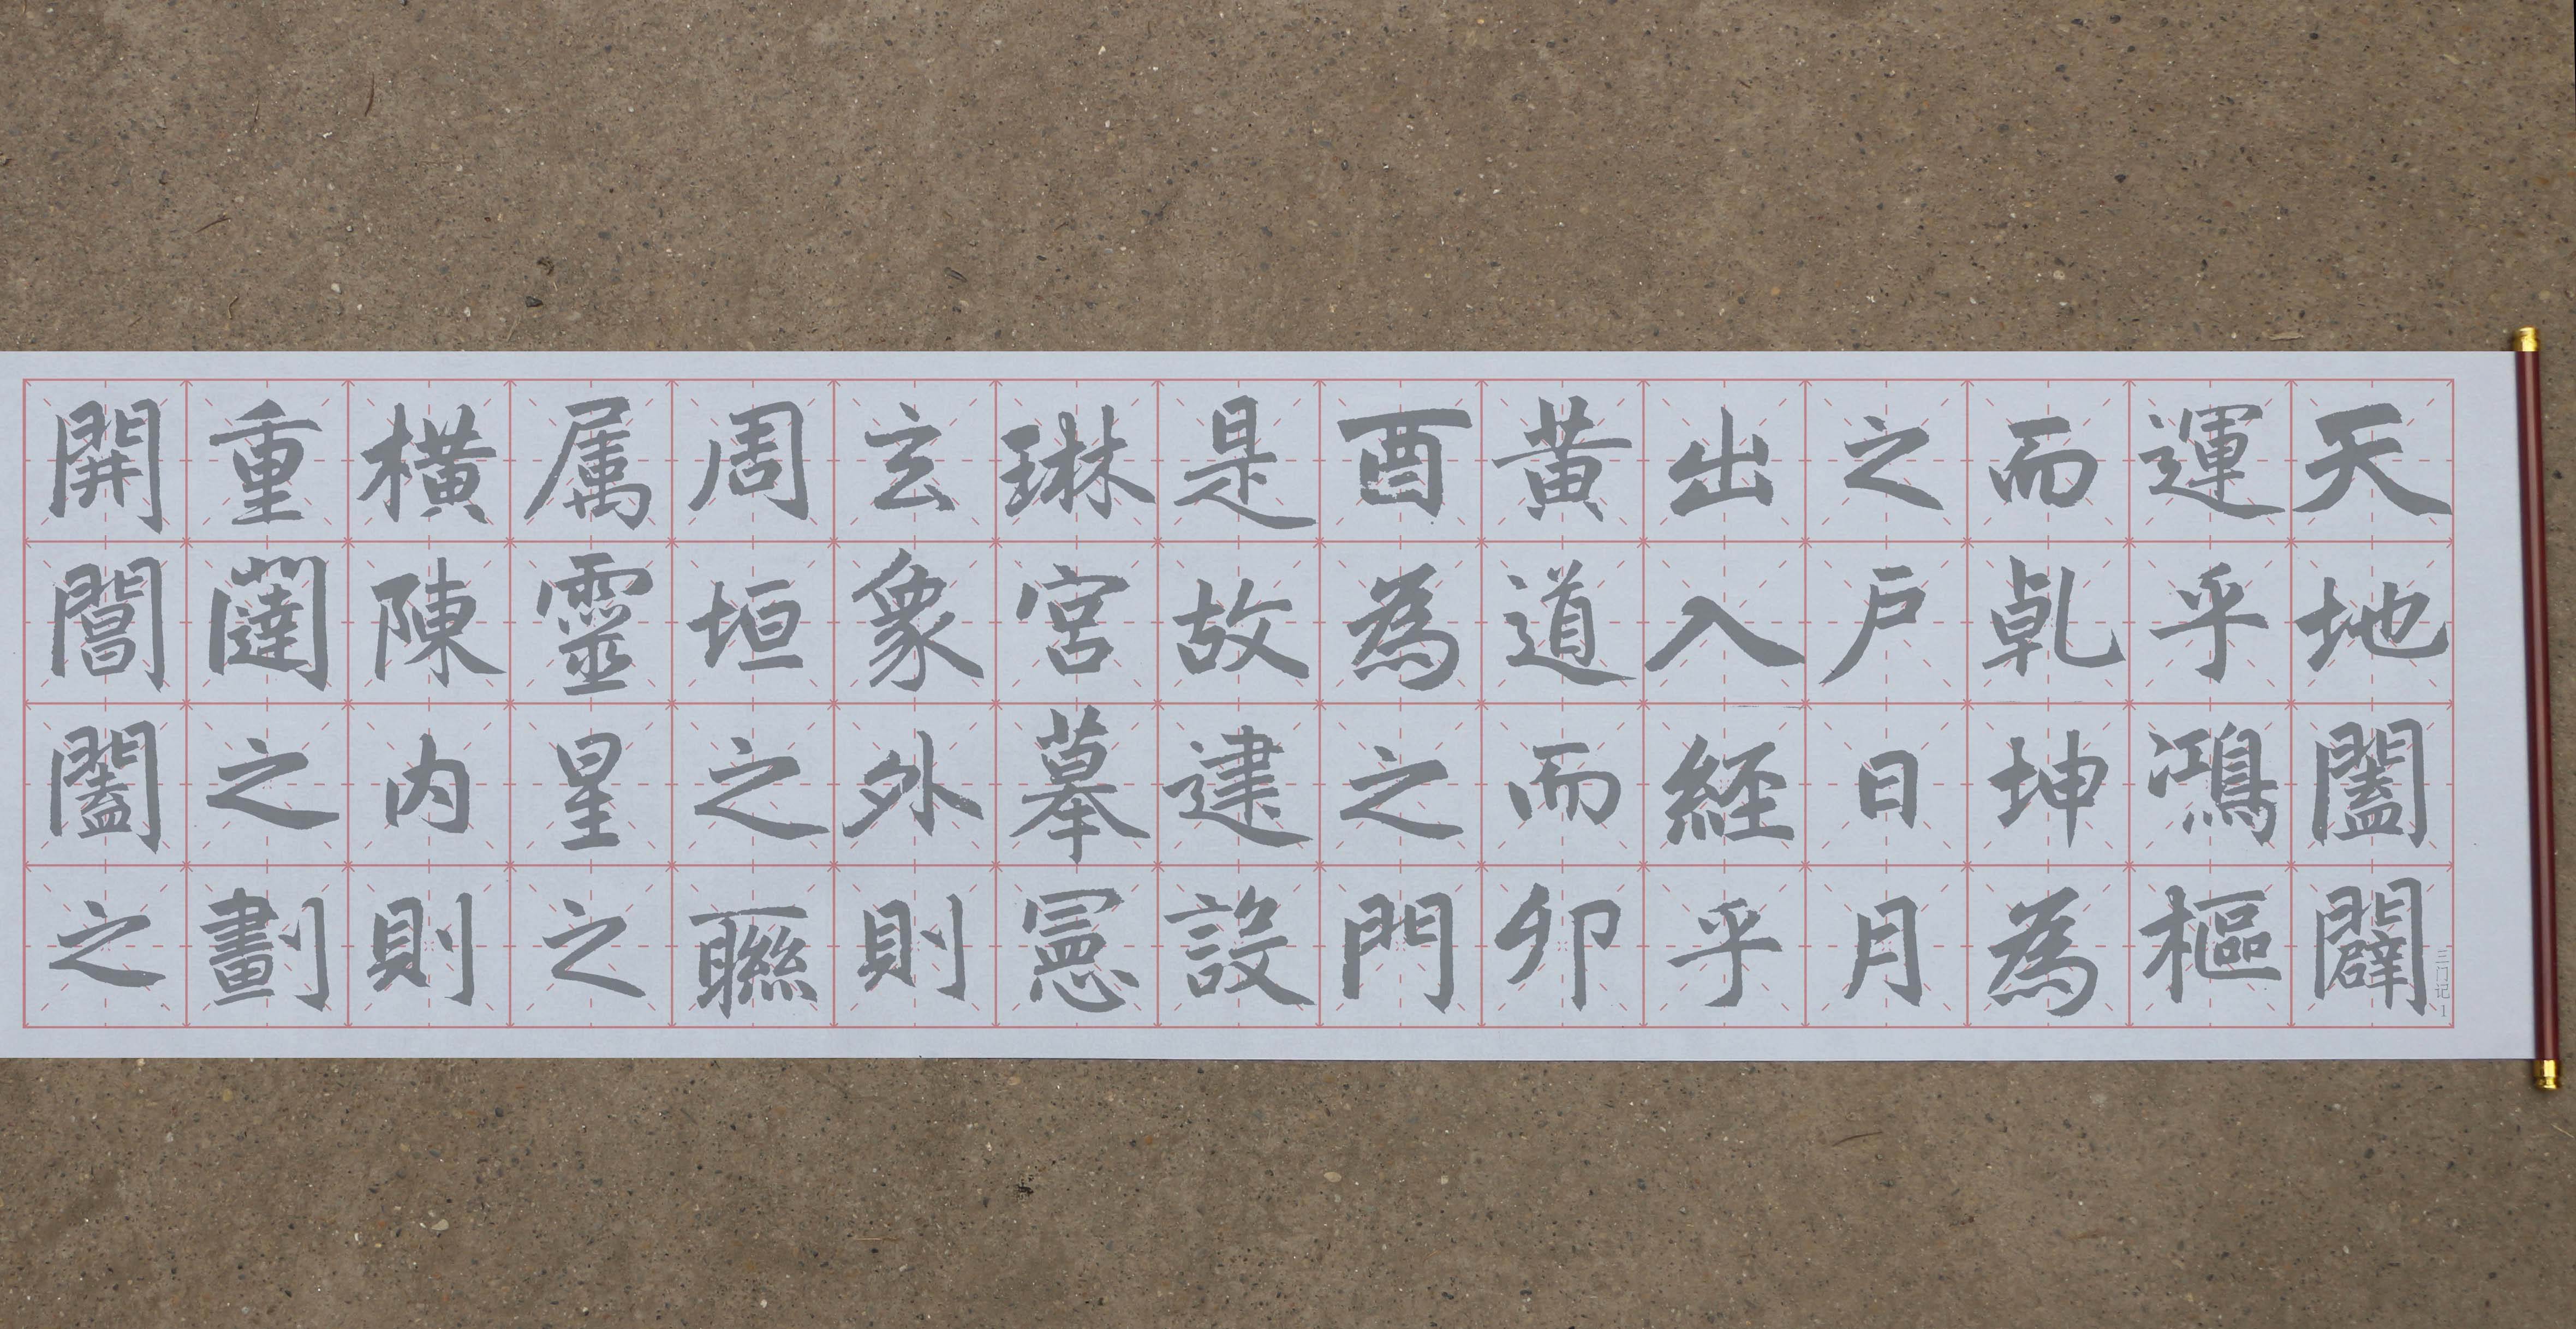 天地闔闢
運乎鴻樞
而乹坤為
之戶日月
出入經乎
黃道而卯
酉為之門
是故建設
琳宮摹憲
玄象外則
周垣之聯
属靈星之
橫陳内則
重闥之劃
開閶闔之
三门记 1